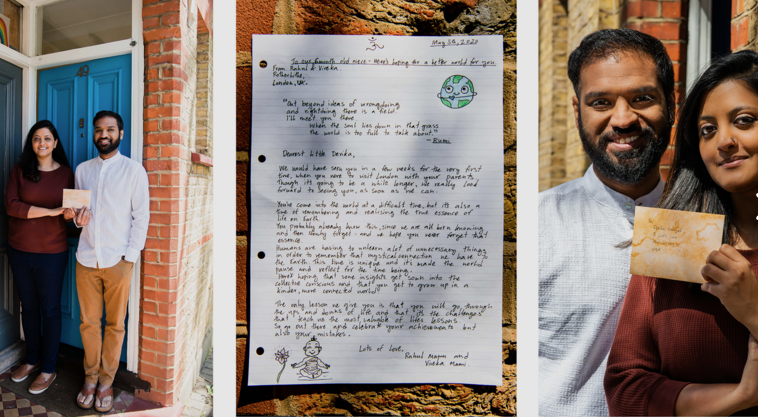 49
ॐ
May 5th, 2020
To our 6 month old niece - Here's hoping for a better world for you.
From Rahul & Viveka
Rotherhithe,
London, UK.
"Out beyond ideas of wrongdoing
and rightdoing there is a field.
I'll meet you there.
When the soul lies down in that grass
the world is too full to talk about."
- Rumi
Dearest little
We would have seen you in a few weeks for the very first
time, when you were to visit London with your parents,
though it's going to be a while longer, we really look
forward to seeing you, as soon as we can.
You've come into the world at a difficult time, but it's also a
time of remembering and realising the true essence of
life on Earth.
You probably already know this, since we are all born knowing
and then slowly forget - and we hope you never forget that
essence.
Humans are having to unlearn a lot of unnecessary things
in order to remember that mystical connection we have to
the Earth. This time is unique and it's made the world
pause and reflect for the time being.
Here's hoping that some insights get sown into the
collective conscious and that you get to grow up in a
kinder, more connected world!
The only lesson we give you is that you will go through
the ups and downs of life and that it's the challenges
that teach us the most valuable of life's lessons
So go out there and celebrate your achievements but
also your mistakes.
Lots of love,
Rahul Mama and
Viveka Mami